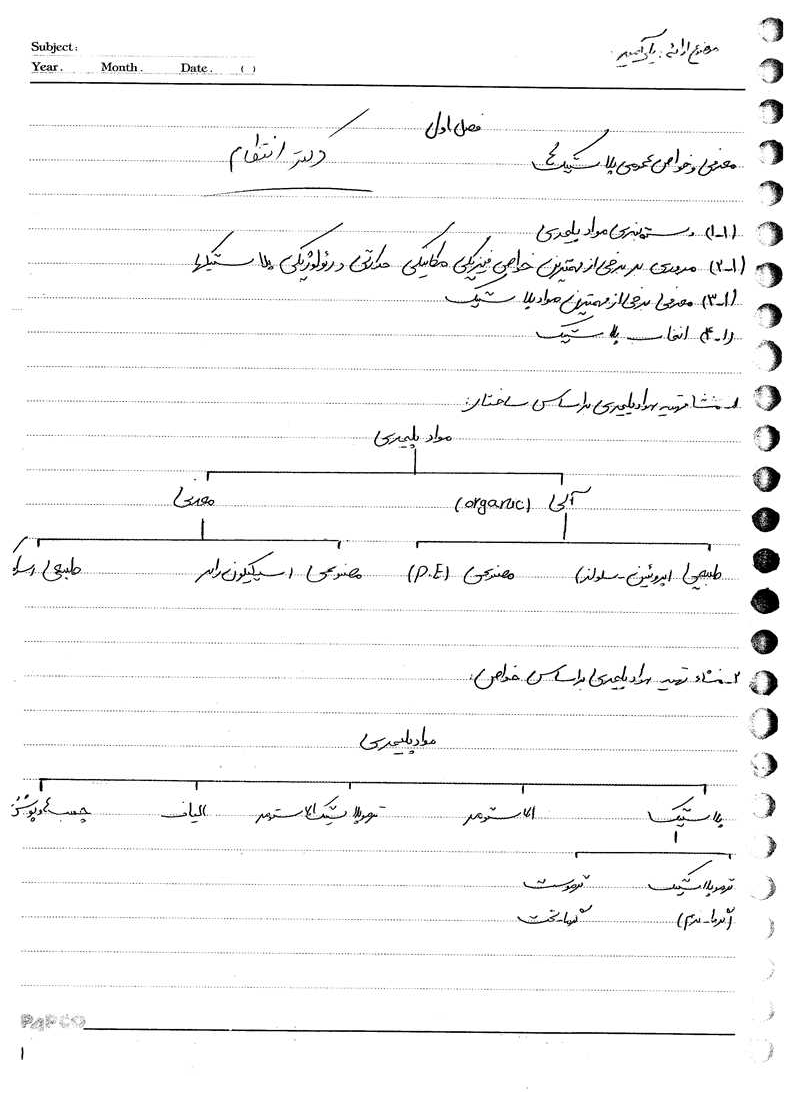 Subject:
Year. Month. Date. ( )
موضوع ارائه:
فصل اول
معرفی و خواص عمومی پلاستیک ها
دکتر انتظام
۱-۱) دسته بندی مواد پلیمری
۱-۲) مروری بر برخی از مهمترین خواص فیزیکی مکانیکی حرارتی و رئولوژیکی پلاستیکها
۱-۳) معرفی برخی از مهمترین مواد پلاستیک
۱-۴) انتخاب پلاستیک
۱- منشا تهیه مواد پلیمری براساس ساختار:
مواد پلیمری
آلی (organic) معدنی
طبیعی (پروتئین-سلولز) مصنوعی (P.E) مصنوعی (سیلیکون رابر طبیعی
۲- منشاء تهیه مواد پلیمری براساس خواص:
مواد پلیمری
پلاستیک الاستومر ترموپلاستیک الاستومر الیاف چسب ها و پوشش
ترموپلاستیک ترموست
(گرما-نرم) گرما-سخت
PAPCO
1